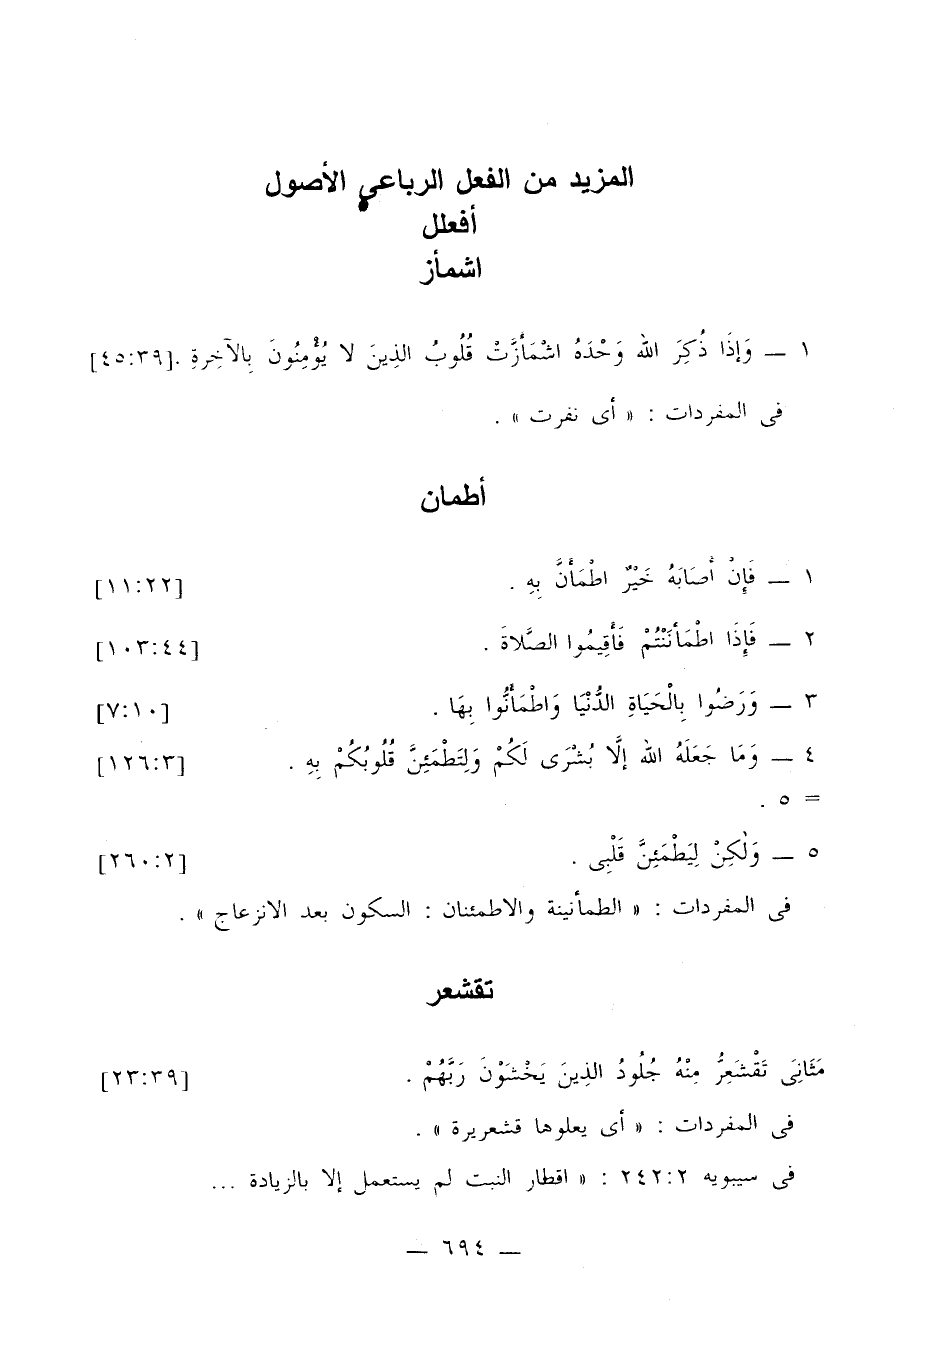 المزيد من الفعل الرباعي الأصول
أفعلل
اشمأز
١ — وَإِذَا ذُكِرَ اللّه وَحْدَهُ اشْمَأَزَّتْ قُلُوبُ الذِينَ لا يُؤْمِنُونَ بِالآخِرةِ .[٤٥:٣٩]
فى المفردات : « أى نفرت » .
أطمان
١ — فَإِنْ أَصَابَهُ خَيْرٌ اطْمَأَنَّ بِهِ . [١١:٢٢]
٢ — فَإِذَا اطْمَأنَنْتُمْ فَأَقِيمُوا الصَّلاةَ . [١٠٣:٤٤]
٣ — وَرَضُوا بِالْحَيَاةِ الدُّنْيَا وَاطْمَأَنُّوا بِهَا . [٧:١٠]
٤ — وَمَا جَعَلَهُ اللّه إلَّا بُشْرَى لَكُمْ وَلِتَطْمَئِنَّ قُلُوبُكُمْ بِهِ . [١٢٦:٣]
= ٥ .
٥ — وَلٰكِنْ لِيَطْمَئِنَّ قَلْبِى . [٢٦٠:٢]
فى المفردات : « الطمأنينة والاطمئنان : السكون بعد الانزعاج » .
تقشعر
مَثَانِىَ تَقْشَعِرُّ مِنْهُ جُلُودُ الذِينَ يَخْشَوْنَ رَبَّهُمْ . [٢٣:٣٩]
فى المفردات : « أى يعلوها قشعريرة » .
فى سيبويه ٢٤٢:٢ : « اقطار النبت لم يستعمل إلا بالزيادة ...
— ٦٩٤ —